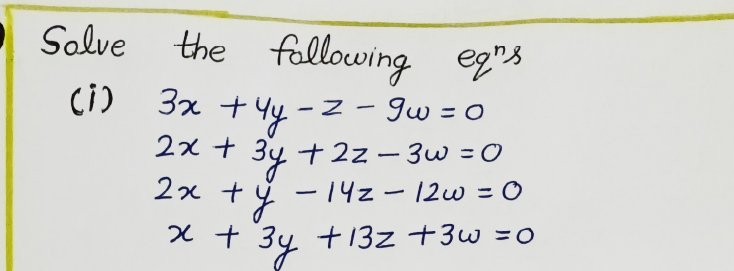 Solve the following eqⁿs
(i) 3x + 4y - z - 9w = 0
2x + 3y + 2z - 3w = 0
2x + y - 14z - 12w = 0
x + 3y + 13z + 3w = 0